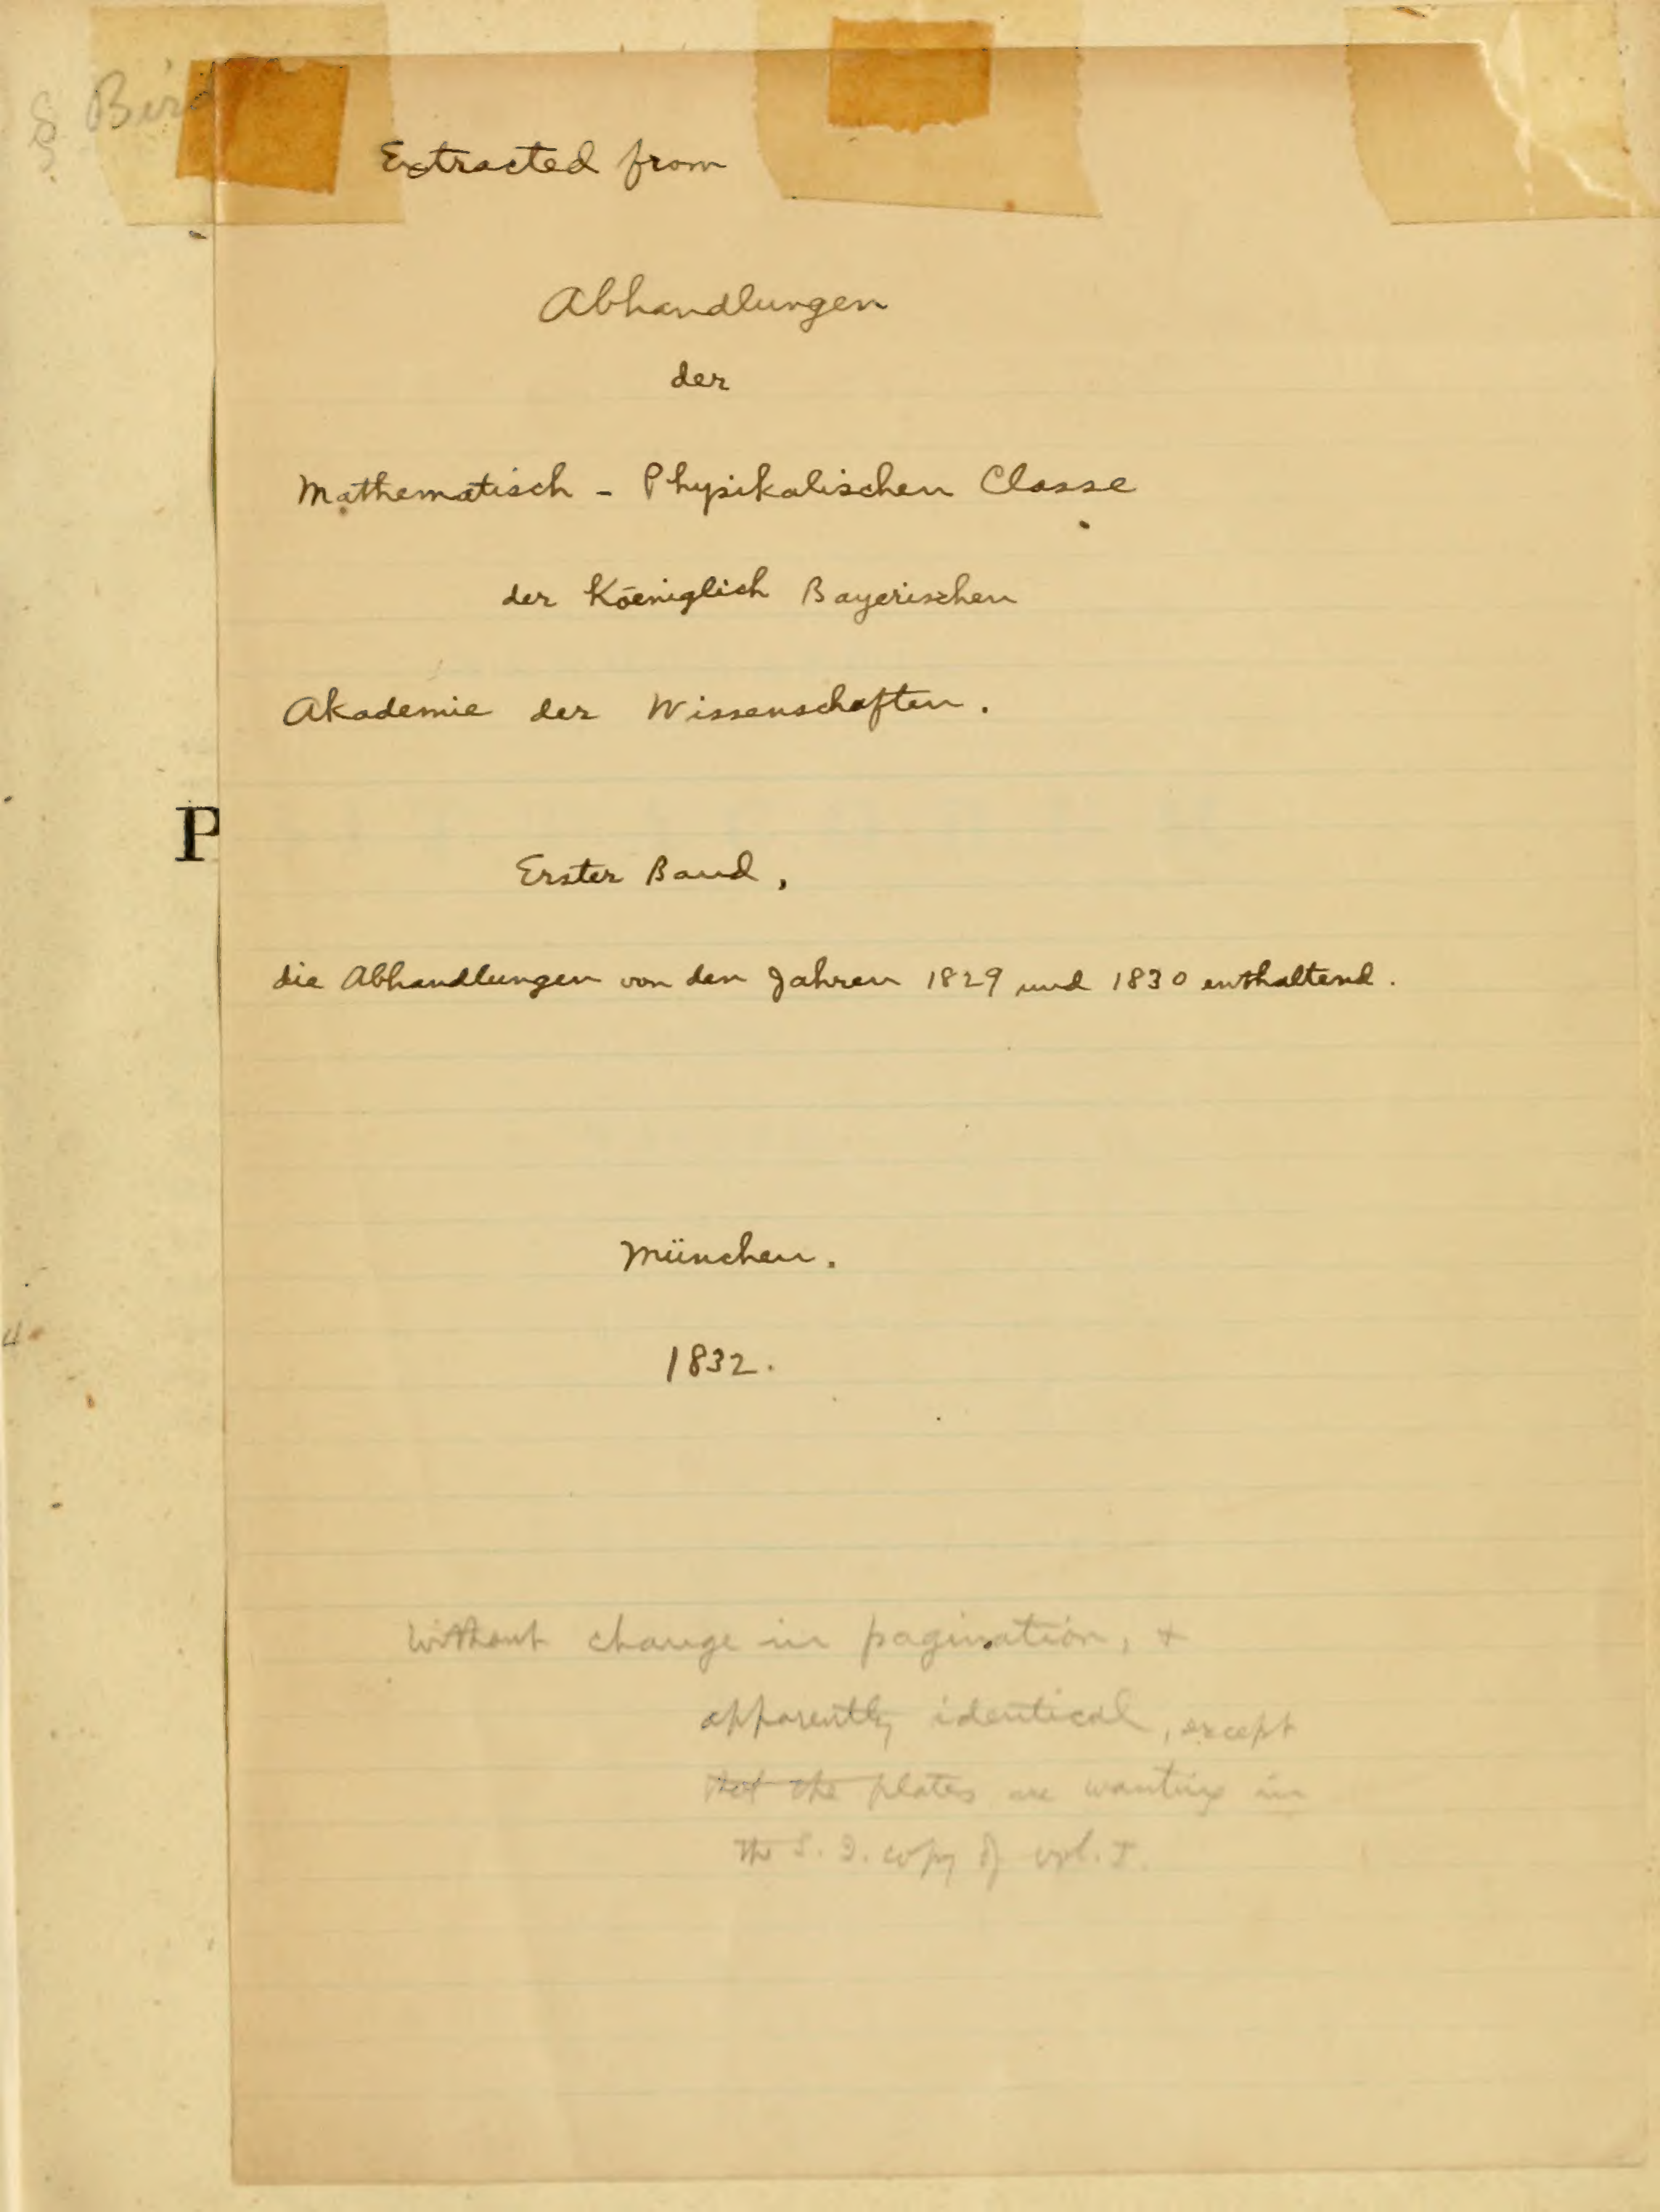 § Bird
Extracted from
Abhandlungen
der
Mathematisch - Physikalischen Classe
der Köeniglich Bayerischen
Akademie der Wissenschaften.
P
Erster Band,
die Abhandlungen von den Jahren 1829 und 1830 enthaltend.
München.
1832.
without change in pagination, &
apparently identical, except
that the plates are wanting in
the S. I. copy of vol. I.